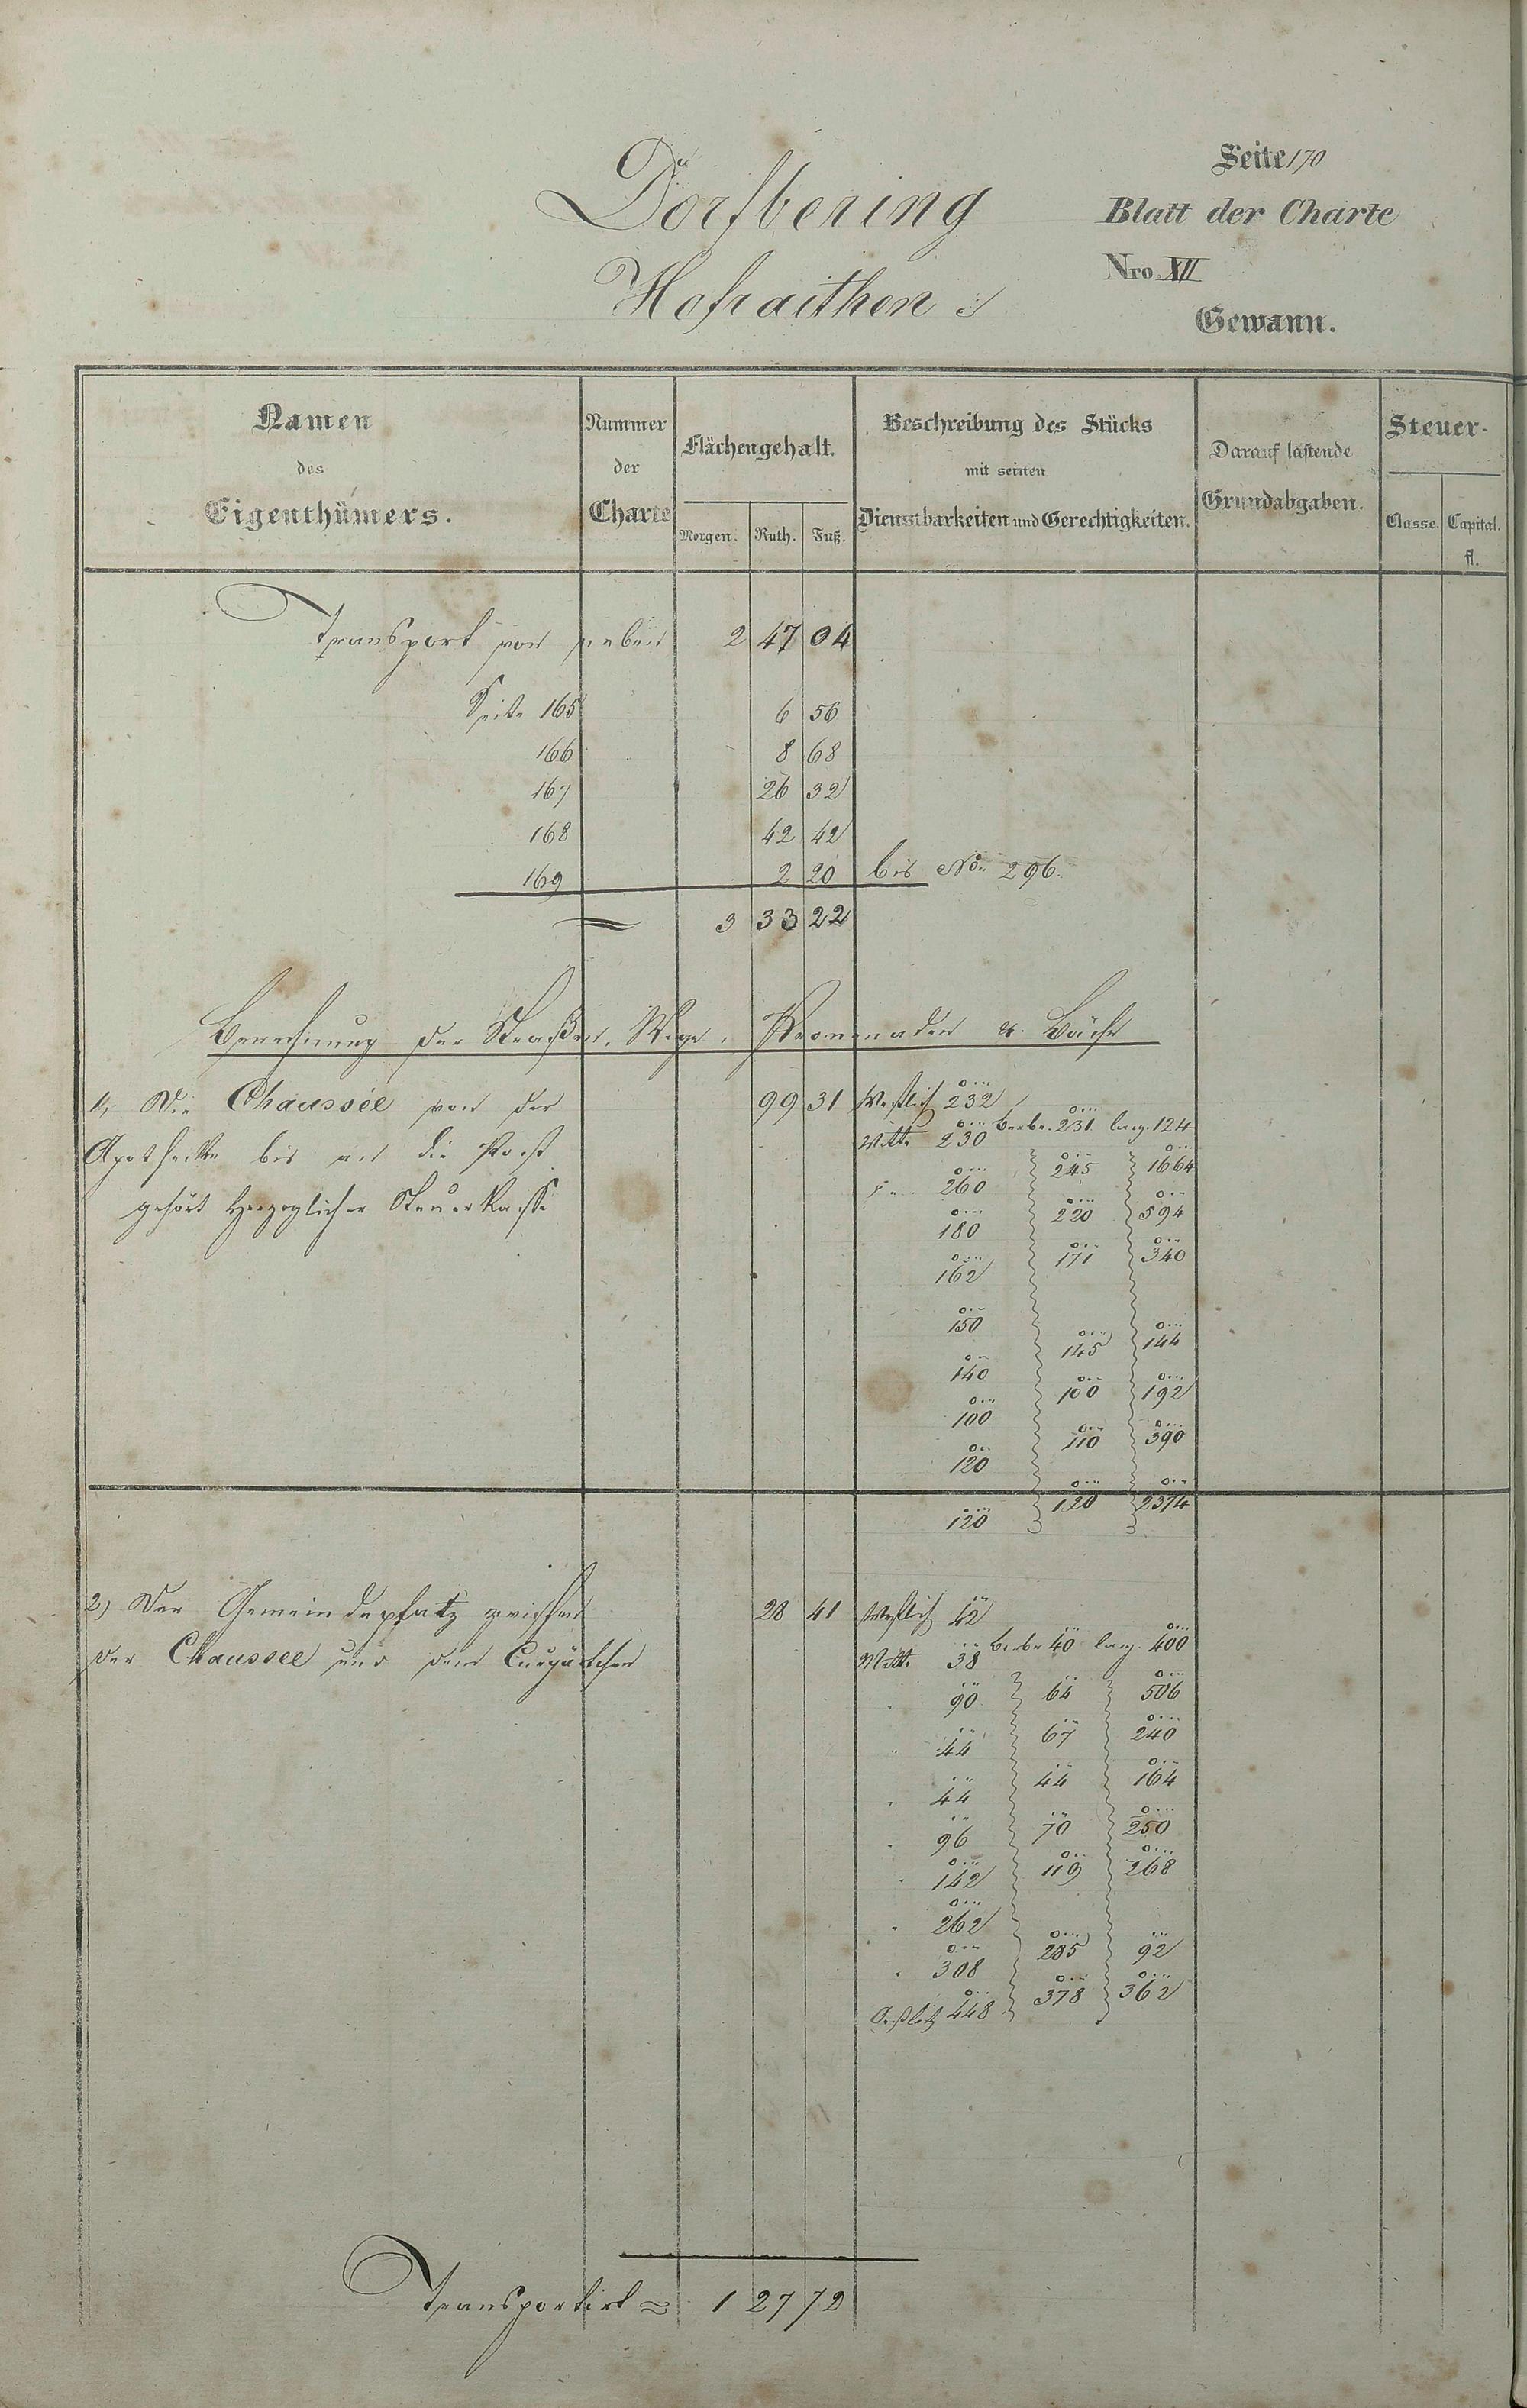 Seite 170
Dorfbering
Blatt der Charte
Hofraithen
Nro. XII
Gewann.
Namen des Eigenthümers.
Nummer der Charte
Flächengehalt.
Morgen. Ruth. Fuß.
Beschreibung des Stücks mit seinen Dienstbarkeiten und Gerechtigkeiten.
Darauf lastende Grundabgaben.
Steuer-
Classe. Capital. fl.
Transport von neben 2 47 04
Seite 165 6 56
166 8 68
167 26 32
168 42 42
169 2 20 bis No. 296.
3 33 22
Berechnung der Straßen, Wege, Promenaden u. Bäche
1, Die Chaussée von der 99 31 Westlich 232
Mitte 230 Berbr. 231 lang. 124
Apothecke bis an die Post
260 245 1664
gehört Herzoglicher Steuerkasse
180 220 594
162 171 340
150
140 145 144
100 100 192
120 110 390
120 120 2374
2) Der Gemeindeplatz zwischen 28 41 Westlich 42
der Chaussee und dem Curgärtchen Mitte 38 Berbr 40 lang. 400
90 64 506
44 67 240
44 44 164
96 70 250
142 119 268
262
308 285 92
Östlich 448 378 362
Transportirt = 1 27 72